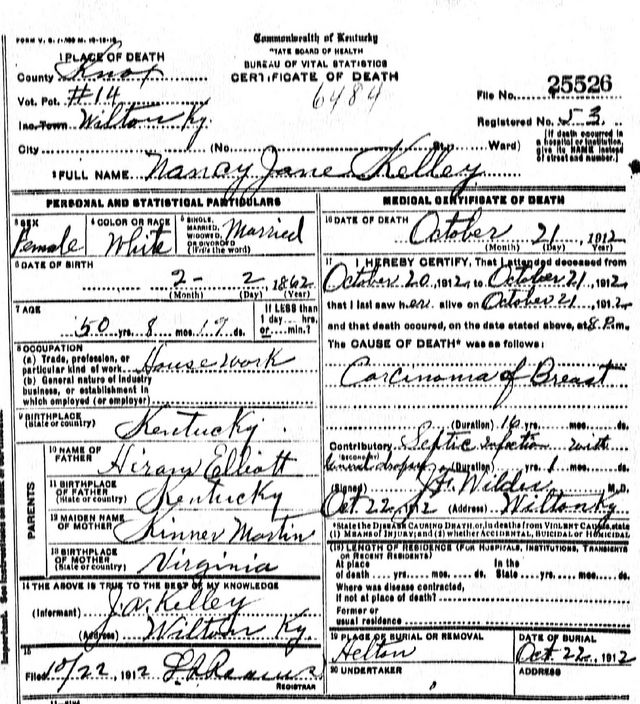 Commonwealth of Kentucky
STATE BOARD OF HEALTH
BUREAU OF VITAL STATISTICS
CERTIFICATE OF DEATH
6484
1 PLACE OF DEATH
County Knox
Vot. Pct. #14
Inc. Town Wilton Ky.
City (No. St., Ward)
File No. 25526
Registered No. 53
(If death occurred in a hospital or institution, give its NAME instead of street and number.)
2 FULL NAME Nancy Jane Kelley
PERSONAL AND STATISTICAL PARTICULARS
3 SEX Female
4 COLOR OR RACE White
5 SINGLE, MARRIED, WIDOWED, OR DIVORCED (Write the word) Married
6 DATE OF BIRTH
2 - 2 1862
(Month) (Day) (Year)
7 AGE
50 yrs. 8 mos. 19 ds.
If LESS than 1 day... hrs. or... min.?
8 OCCUPATION
(a) Trade, profession, or particular kind of work. House work
(b) General nature of industry
business, or establishment in
which employed (or employer)
9 BIRTHPLACE
(State or country) Kentucky.
PARENTS
10 NAME OF FATHER Hiram Elliott
11 BIRTHPLACE OF FATHER (State or country) Kentucky
12 MAIDEN NAME OF MOTHER Martin
13 BIRTHPLACE OF MOTHER (State or country) Virginia
14 THE ABOVE IS TRUE TO THE BEST OF MY KNOWLEDGE
(Informant) Kelley
(Address) Wilton Ky.
15
Filed 10/22, 1912
REGISTRAR
MEDICAL CERTIFICATE OF DEATH
16 DATE OF DEATH
October 21, 1912
(Month) (Day) (Year)
17 I HEREBY CERTIFY, That I attended deceased from
October 20, 1912, to October 21, 1912,
that I last saw her alive on October 21, 1912,
and that death occured, on the date stated above, at 8 P.m.
The CAUSE OF DEATH* was as follows:
Carcinoma of Breast
(Duration) 16 yrs. mos. ds.
Contributory Septic infection with
(Secondary)
dropsy (Duration) yrs. 1 mos. ds.
(Signed) Wilder M.D.
Oct. 22, 1912 (Address) Wilton Ky
*State the DISEASE CAUSING DEATH, or, in deaths from VIOLENT CAUSES, state
(1) MEANS OF INJURY; and (2) whether ACCIDENTAL, SUICIDAL or HOMICIDAL
18 LENGTH OF RESIDENCE (FOR HOSPITALS, INSTITUTIONS, TRANSIENTS
OR RECENT RESIDENTS)
At place of death yrs. mos. ds. In the State yrs. mos. ds.
Where was disease contracted,
if not at place of death?
Former or
usual residence
19 PLACE OF BURIAL OR REMOVAL
Helton
DATE OF BURIAL
Oct. 22, 1912
20 UNDERTAKER
ADDRESS